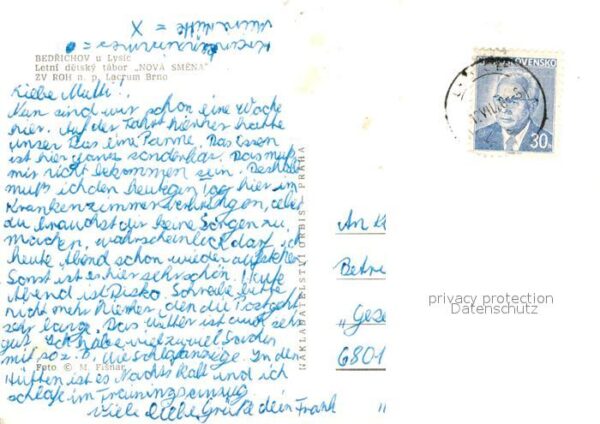 X = meine Hütte
Krankenzimmer =
BEDŘICHOV u Lysic
Letní dětský tábor „NOVÁ SMĚNA"
ZV ROH n. p. Lacrum Brno
Liebe Mutti!
Nun sind wir schon eine Woche
hier. Auf der Fahrt hierher hatte
unser Bus eine Panne. Das Essen
ist hier ganz sonderbar. Das muß
mir nicht bekommen sein. Deshalb
muß ich den heutigen Tag hier im
Krankenzimmer verbringen, aber
du brauchst dir keine Sorgen zu
machen, wahrscheinlich darf ich
heute Abend schon wieder aufstehen
Sonst ist es hier sehr schön. Heute
Abend ist Disko. Schreibe bitte
nicht mehr hierher, den die Post geht
sehr lange. Das Wetter ist auch sehr
gut. Ich habe viel zu viel Sachen
mit so z. B. die Schlafanzüge. In den
Hütten ist es Nachts kalt und ich
schlafe im Trainingsanzug
Viele liebe Grüße dein Frank
Foto © M. Fišnar
NAKLADATELSTVÍ ORBIS PRAHA
SLOVENSKO
30
An
Betre
„Gese
6801
privacy protection
Datenschutz